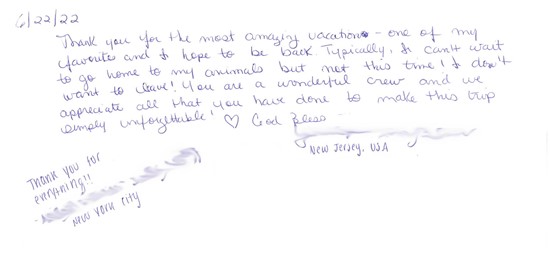 6/22/22
Thank you for the most amazing vacation - one of my
favorites and I hope to be back. Typically, I can't wait
to go home to my animals but not this time! I don't
want to leave! You are a wonderful crew and we
appreciate all that you have done to make this trip
simply unforgettable! ♡ God Bless
New Jersey, USA
Thank you for
everything!!
New York City